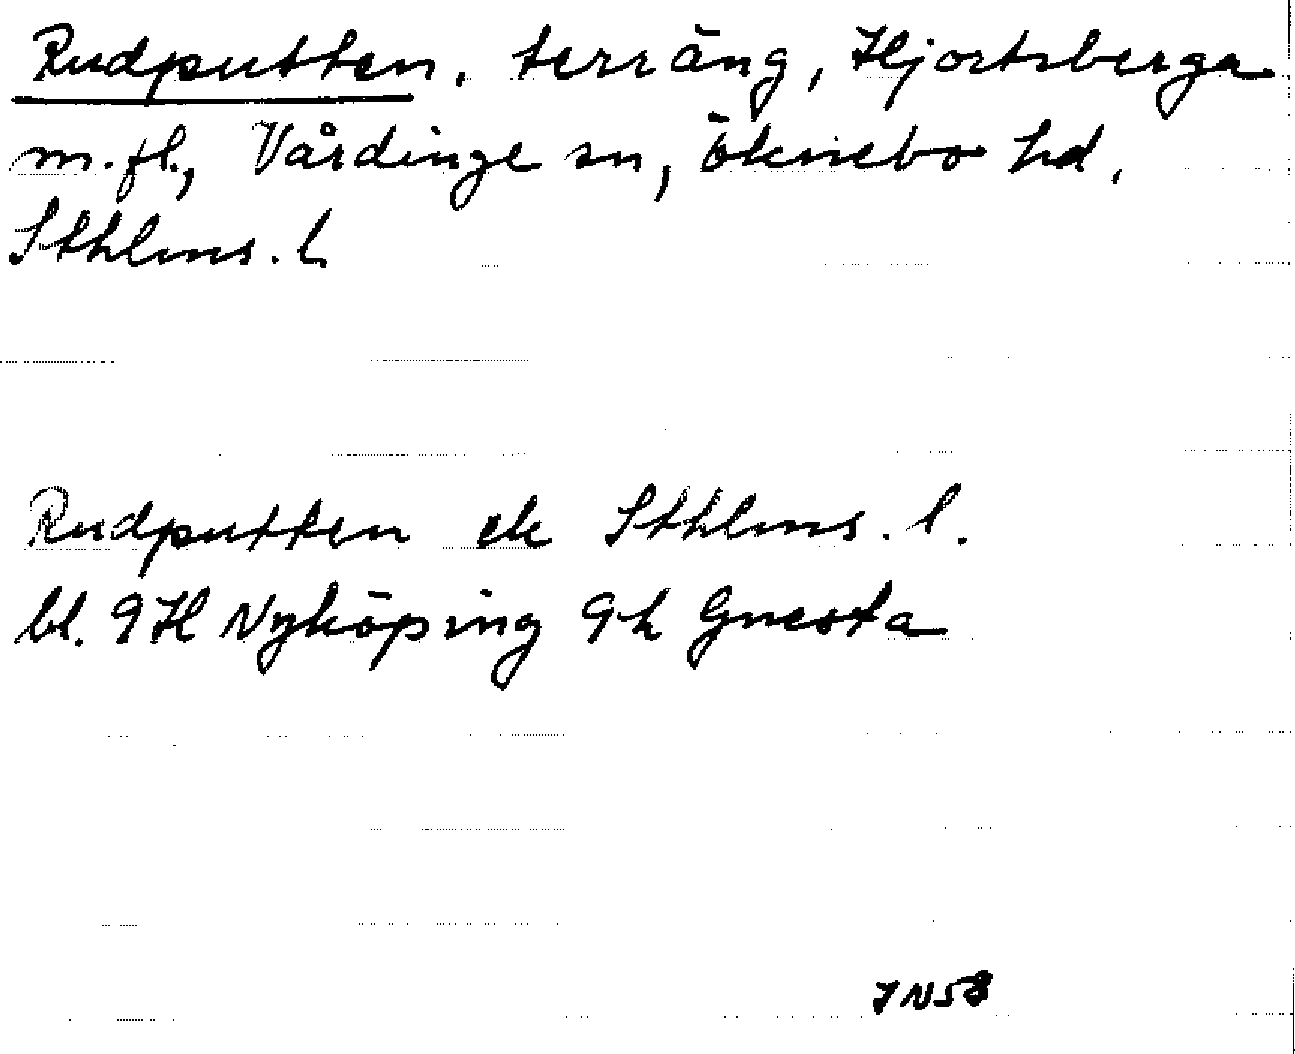 Rudputten, terräng, Hjortsberga
m.fl., Vårdinge sn, Öknebo hd,
Sthlms. l.
Rudputten ek Sthlms. l.
bl. 9H Nyköping 9h Gnesta